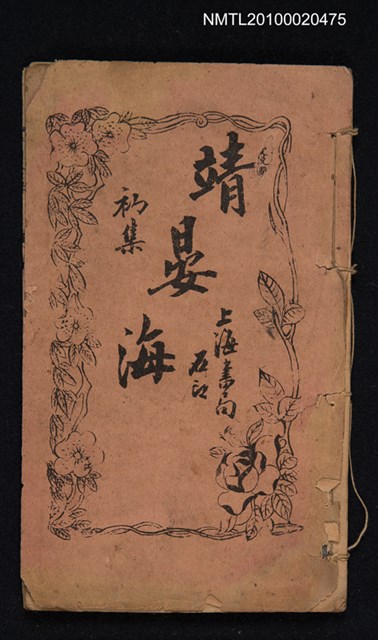 NMTL20100020475
靖
晏
海
初集
上海書局
石印